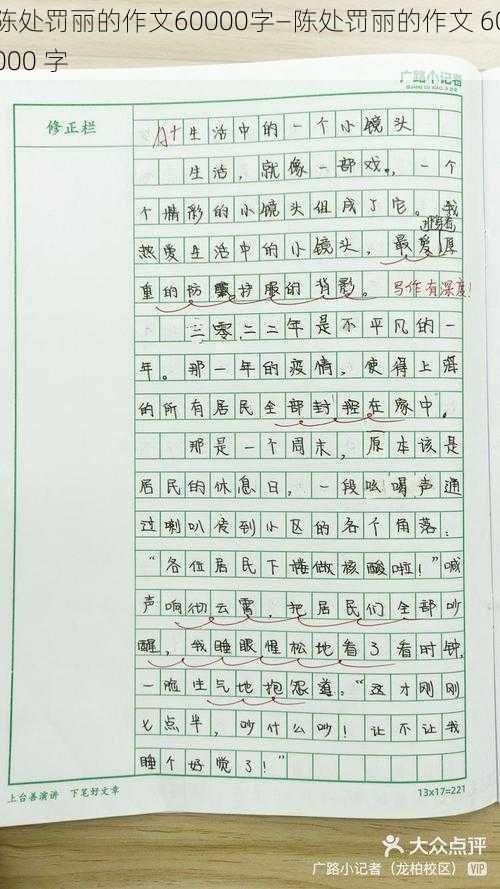 陈处罚丽的作文60000字—陈处罚丽的作文 60
000 字
广路小记者
GUANG LU XIAO JI ZHE
修正栏
A+
生活中的一个小镜头
生活，就像一部戏，一个
个精彩的小镜头组成了它。我
热爱生活中的小镜头，最爱厚
那穿着
重的防护服的背影。
写作有深度！
二零二二年是不平凡的一
年。那一年的疫情，使得上海
的所有居民全部封控在家中。
那是一个周末，原本该是
居民的休息日，一段吆喝声通
过喇叭传到小区的各个角落：
“各位居民下楼做核酸啦！”喊
声响彻云霄，把居民们全部吵
醒，我睡眼惺松地看了看时钟，
一脸生气地抱怨道：“这才刚刚
七点半，吵什么吵！让不让我
睡个好觉了！”
上台善演讲 下笔好文章
13x17=221
大众点评
广路小记者（龙柏校区） VIP